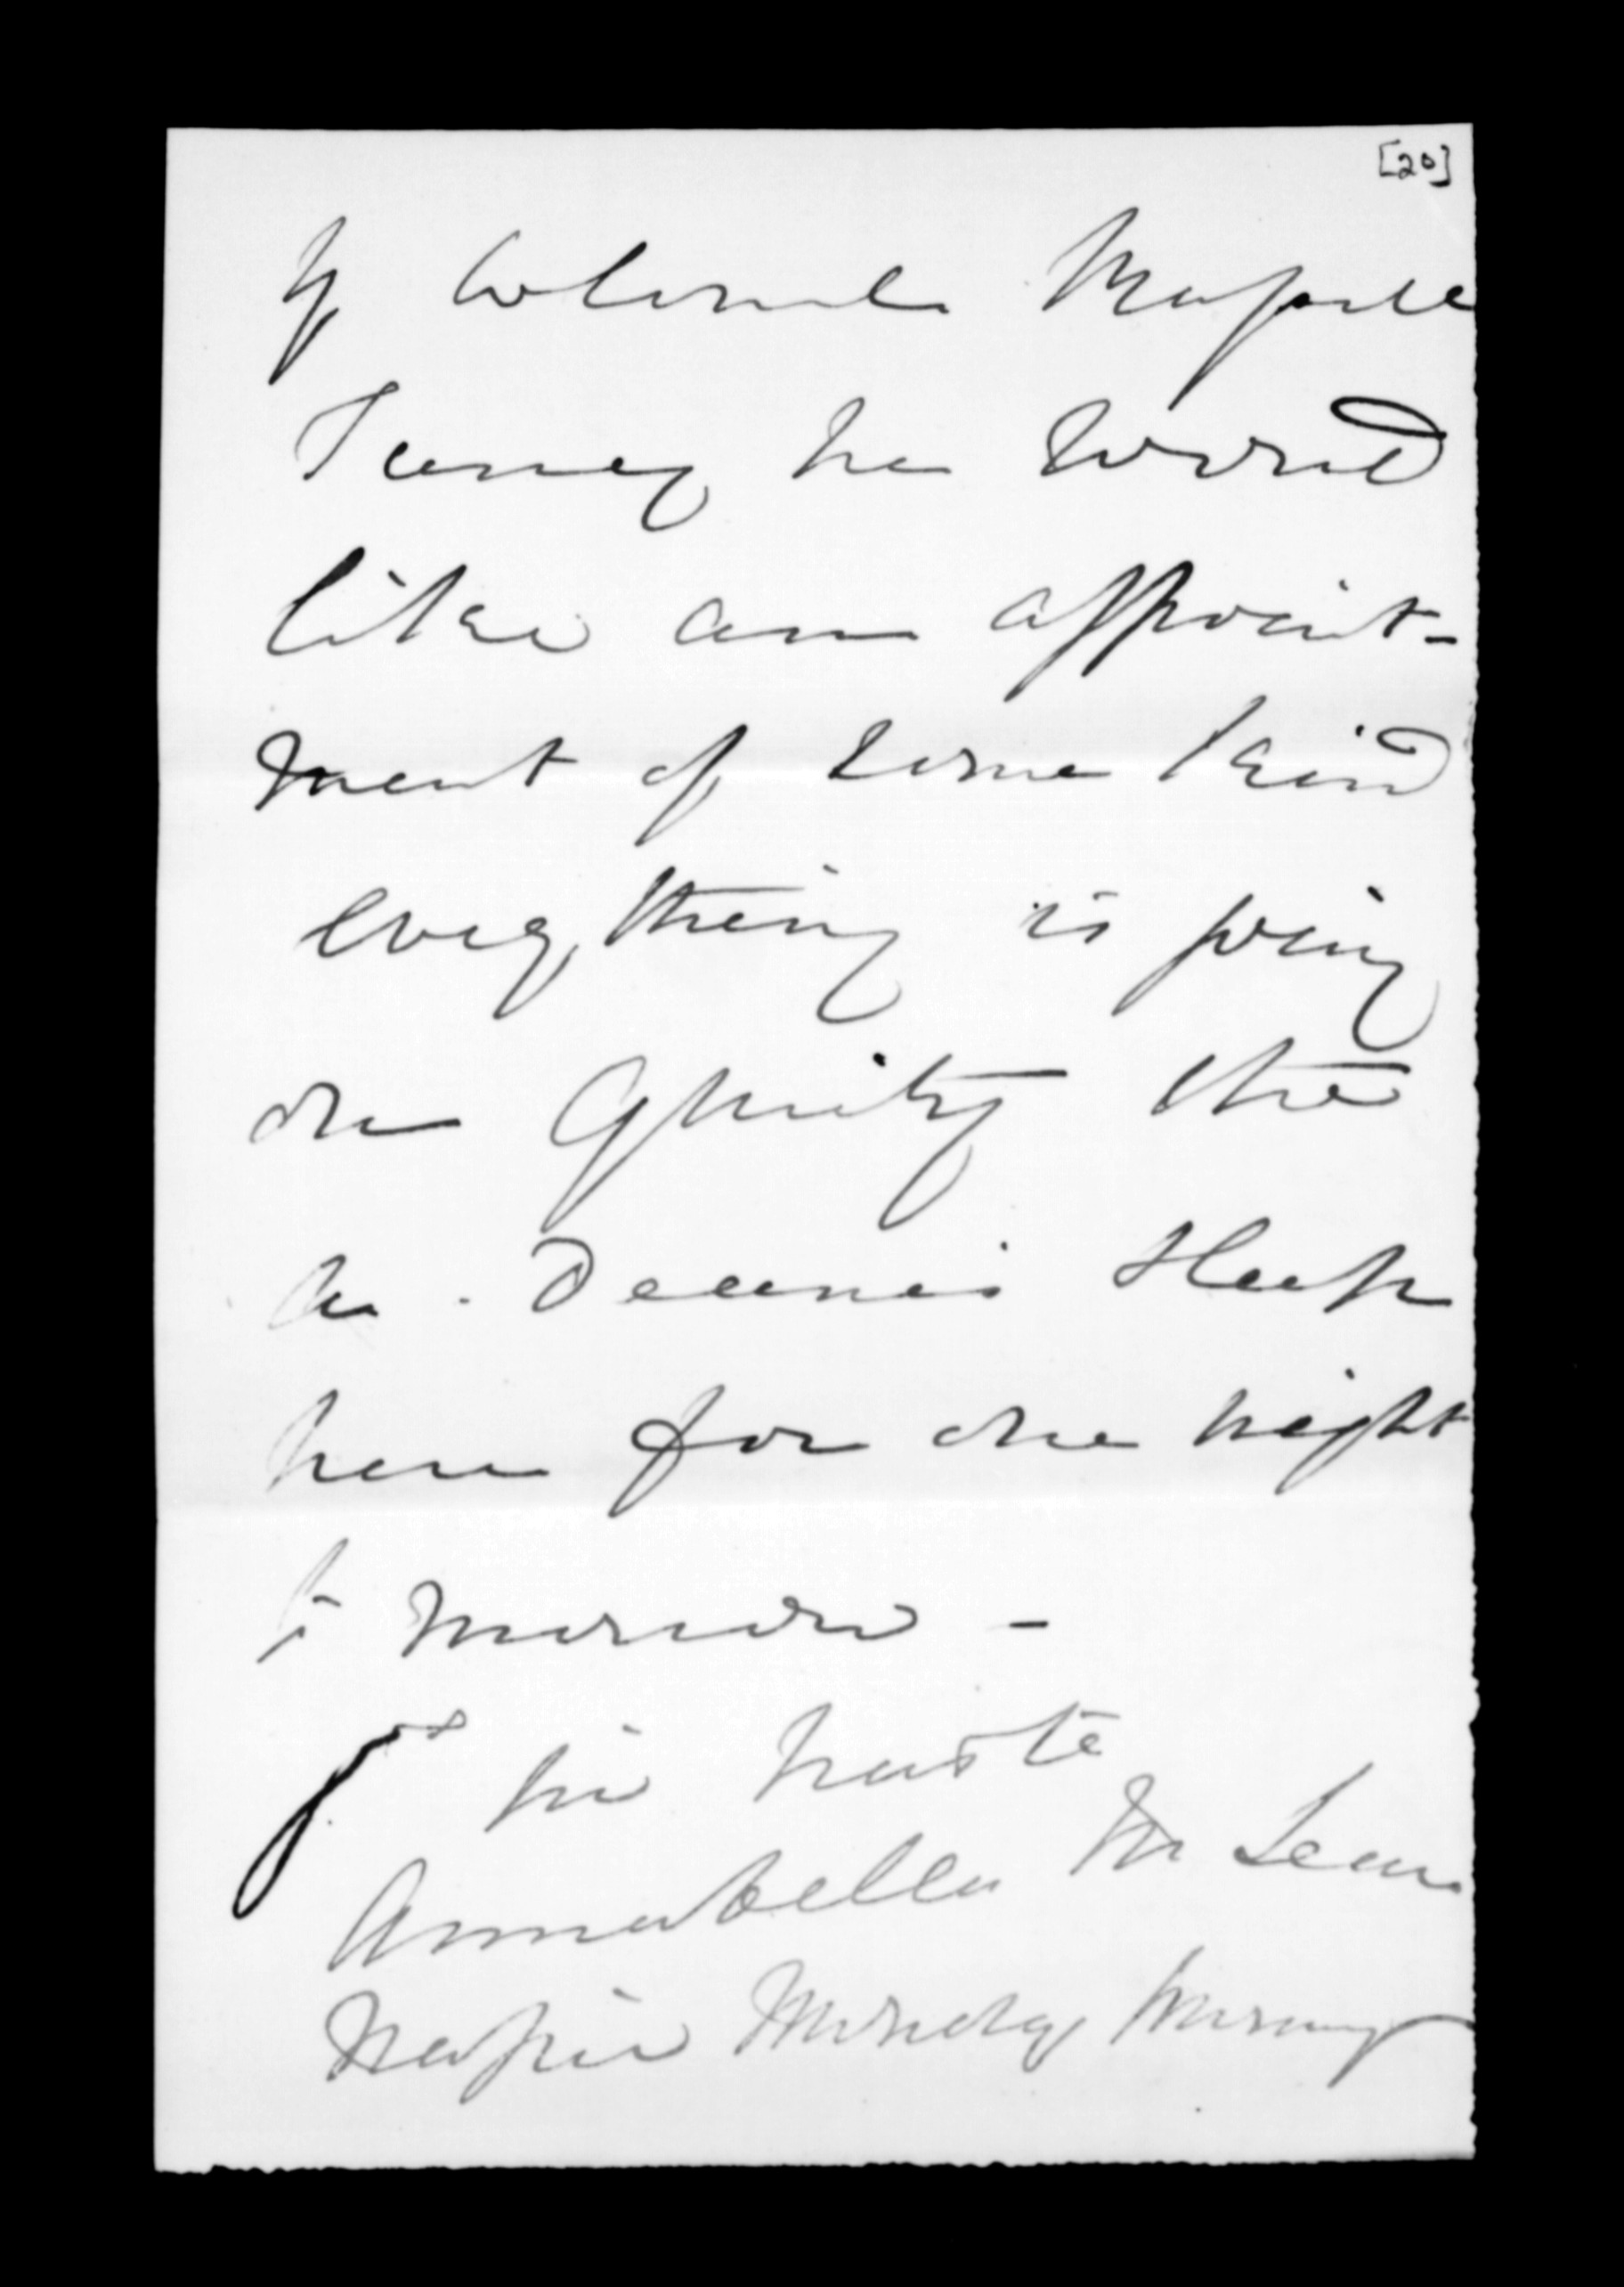 [20]
of Colonel Russell
I fancy he would
like an appoint-
ment of some kind
every thing is going
on quietly the
Dr. Deanes sleep
here for one night
to morrow -
yrs in haste
Annabella McLean
Napier Monday Morning